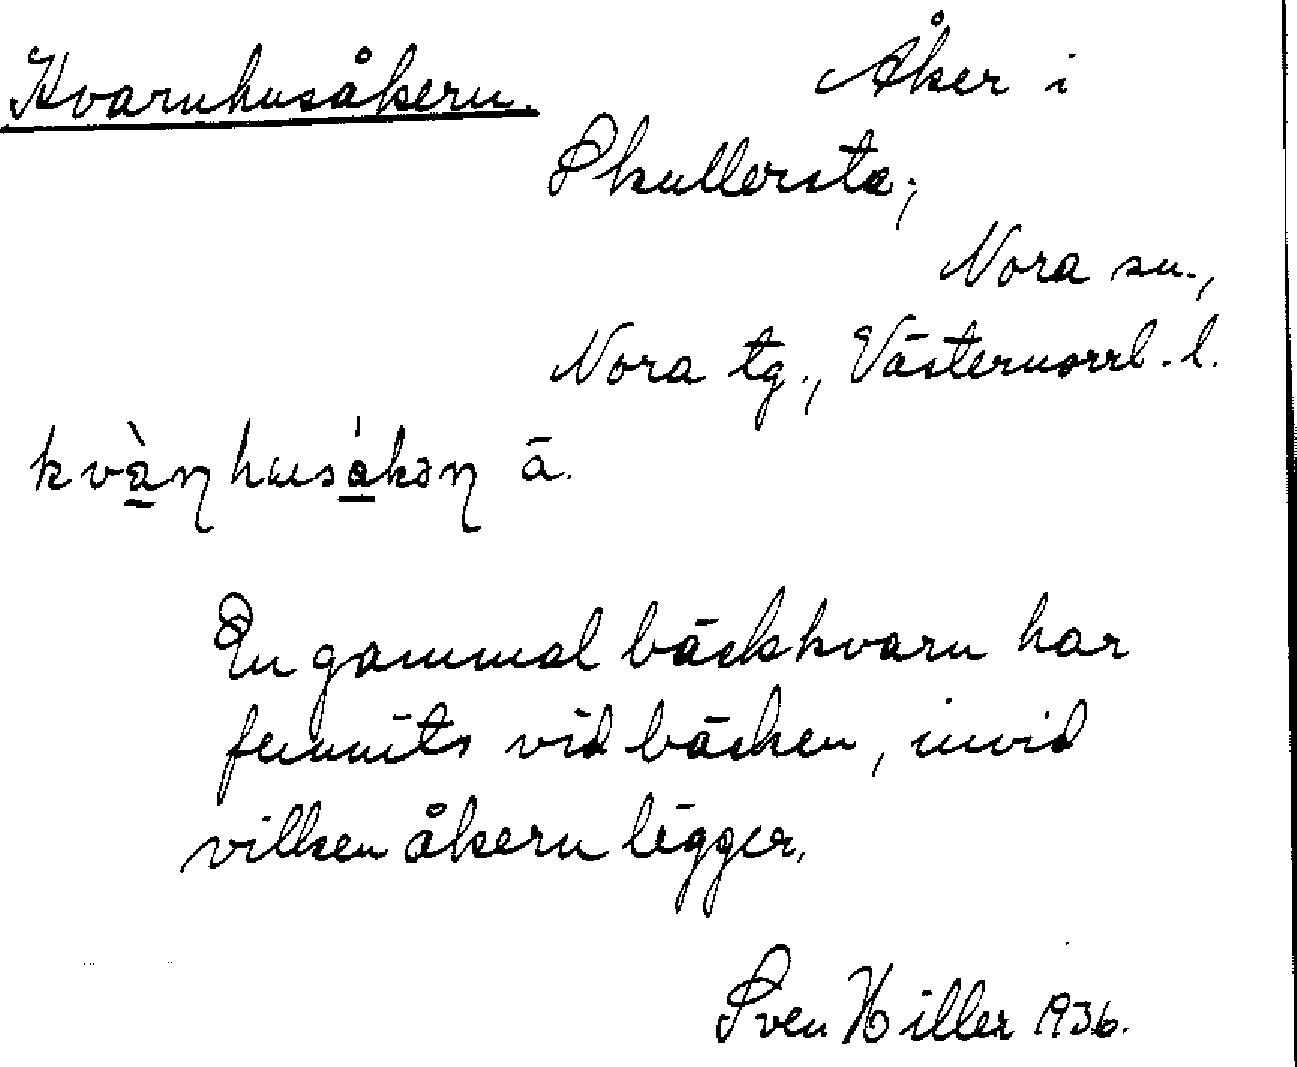 Kvarnhusåkern. Åker i
Skullersta,
Nora sn.,
Nora tg., Västernorrl. l.
kvàn̩husákən̩ ā.
En gammal bäckkvarn har
funnits vid bäcken, invid
vilken åkern ligger.
Sven Hiller 1936.